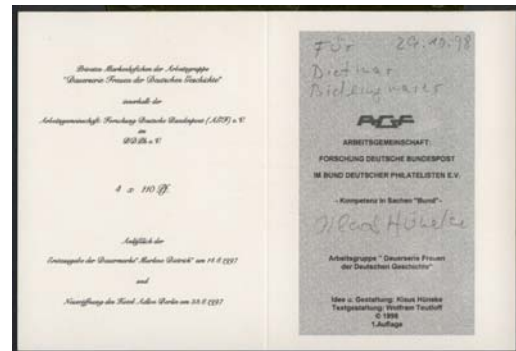 Privates Markenheftchen der Arbeitsgruppe
"Dauerserie Frauen der Deutschen Geschichte"
innerhalb der
Arbeitsgemeinschaft: Forschung Deutsche Bundespost (AGF) e.V.
im
B.D.Ph e.V.
4 x 110 Pf.
Anläßlich der
Erstausgabe der Dauermarke "Marlene Dietrich" am 14.8.1997
und
Neueröffnung des Hotel Adlon Berlin am 23.8.1997
Für 29.10.98
Dietmar
AGF
ARBEITSGEMEINSCHAFT:
FORSCHUNG DEUTSCHE BUNDESPOST
IM BUND DEUTSCHER PHILATELISTEN E.V.
- Kompetenz in Sachen "Bund"-
Hüneke
Arbeitsgruppe " Dauerserie Frauen
der Deutschen Geschichte"
Idee u. Gestaltung: Klaus Hüneke
Textgestaltung: Wolfram Teutloff
© 1998
1.Auflage